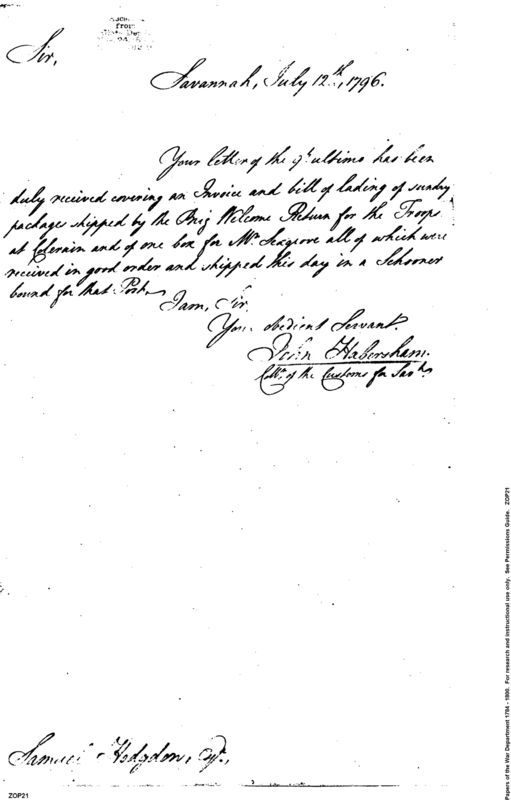 from
Sir,
Savannah, July 12th, 1796.
Your letter of the 9th ultimo has been
duly received covering an Invoice and bill of lading of sundry
packages shipped by the Brig Welcome Return for the Troops
at Colerain and of one box for Mr. Seagrove all of which were
received in good order and shipped this day in a Schooner
bound for that Post.
I am, Sir
Your obedient Servant.
John Habersham.
Collr. of the Customs for Savh.
Samuel Hodgdon, Esqr.,
ZOP21
Papers of the War Department 1784 - 1800. For research and instructional use only. See Permissions Guide. ZOP21